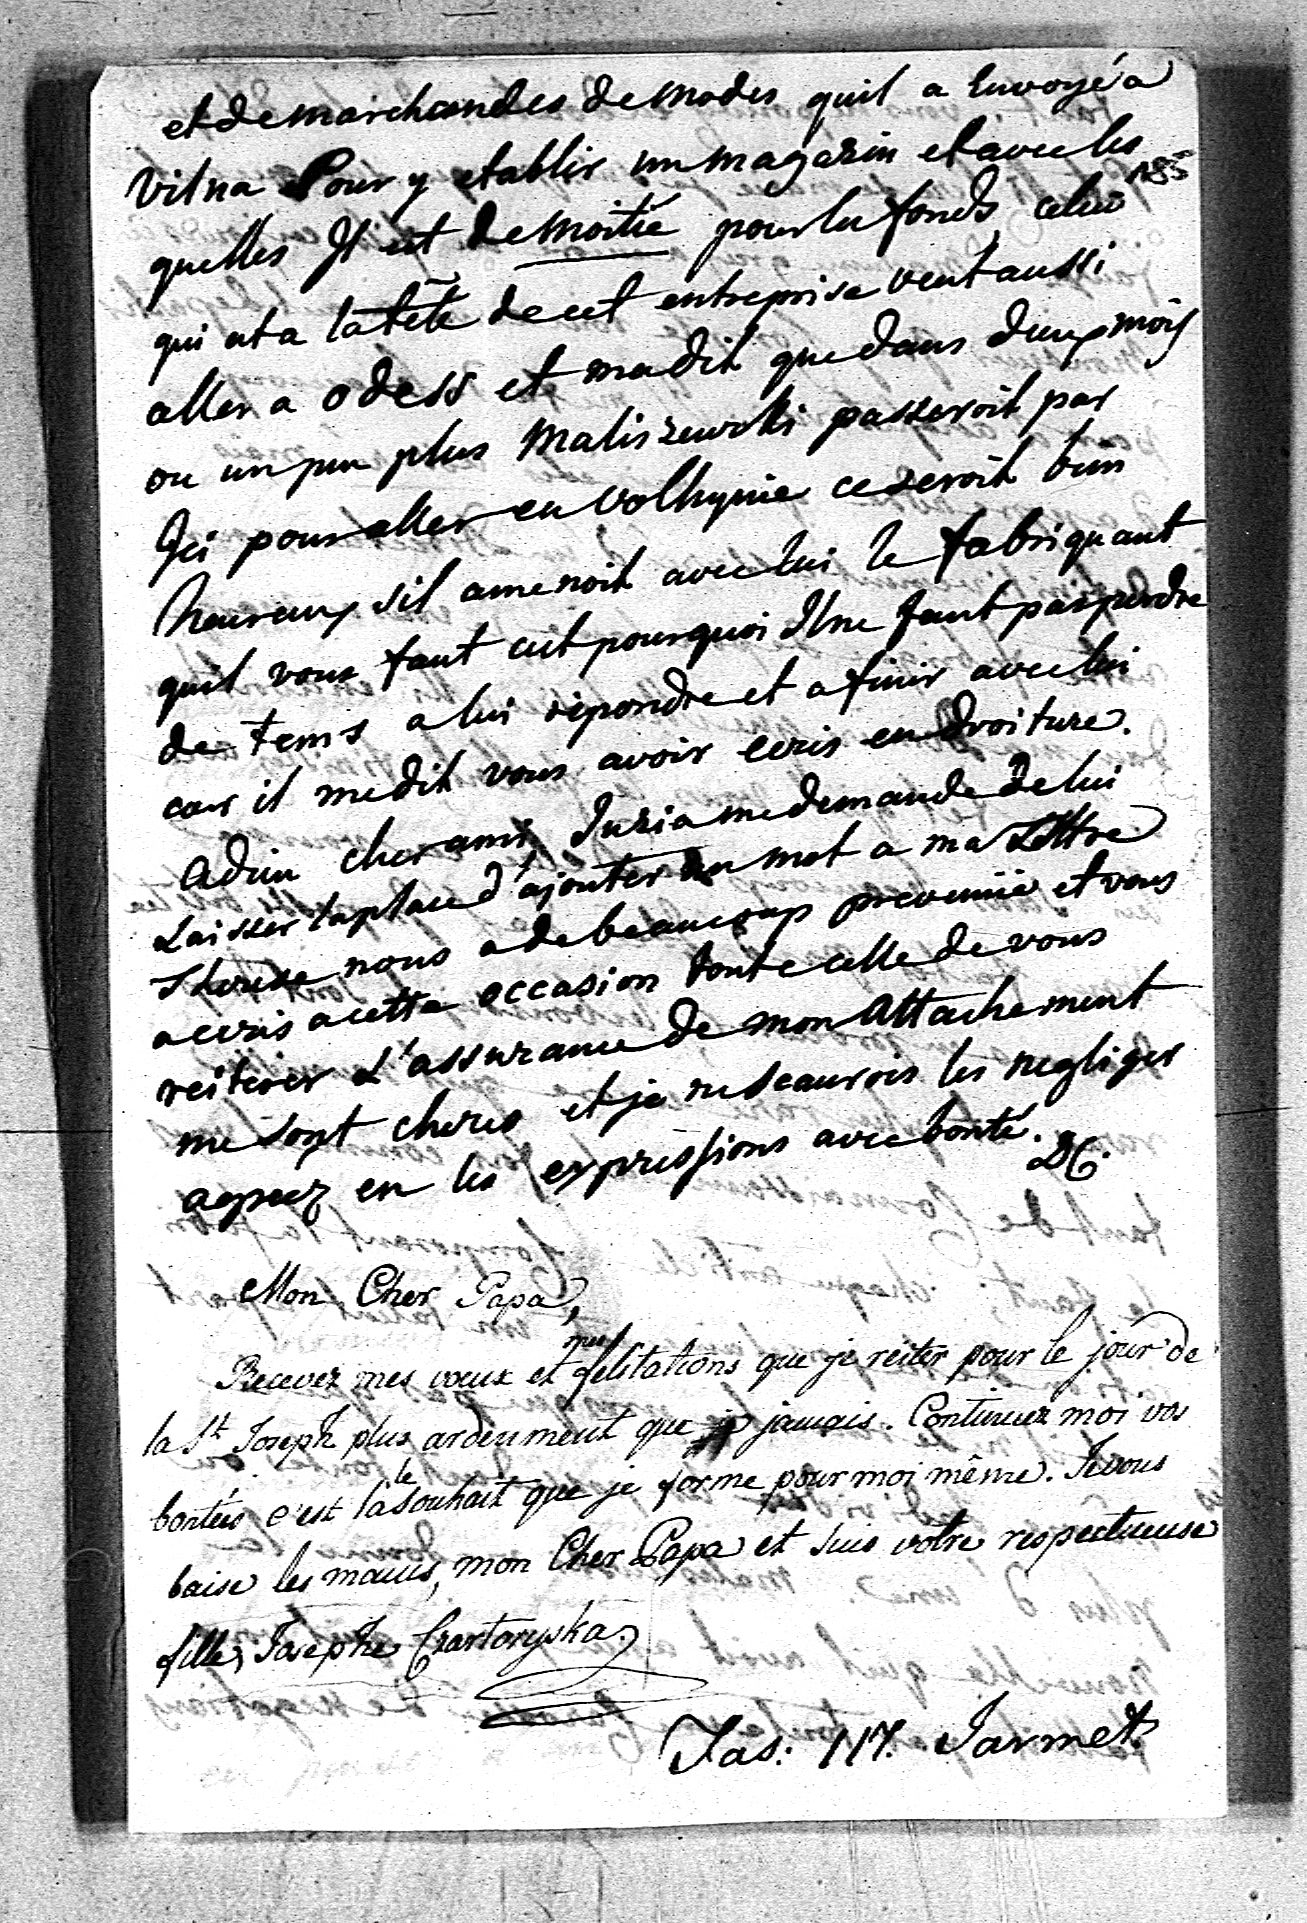 et de marchandes de modes quil a Envoyé a
vilna Pour y etablir un magazin et avec les
185
quelles Il est de moitié pour les fonds, celui
qui est a la tête de cet entreprise veut aussi
aller a odess et ma dit que dans deux mois
ou un peu plus Maliszewski passeroit par
Ici pour aller en volhynie ce seroit bien
heureux sil amenoit avec lui le fabriquant
quil vous faut cest pourquoi Il ne faut pas perdre
de tems a lui repondre et a finir avec lui
car il me dit vous avoir ecris en droiture.
adieu cher ami, Juzia me demande de lui
Laisser la place d'ajouter un mot a ma Lettre
Therese nous a de beaucoup prevenüe et vous
a ecris a cette occasion toute celle de vous
reiterer L'assurance de mon attachement
me sont cheres et je ne scaurois les negliger
agreez en les expressions avec bonté.
DC.
Mon Cher Papa,
Recevez mes vœux et mes felitations que je reiter pour le jour de
la St Joseph plus ardemment que jamais. Continuez moi vos
bontées c'est là le souhait que je forme pour moi même. Je vous
baise les mains, mon Cher Papa et suis votre respectueuse
fille, Josephe Czartoryska.
Jas: 117. Jarmet.